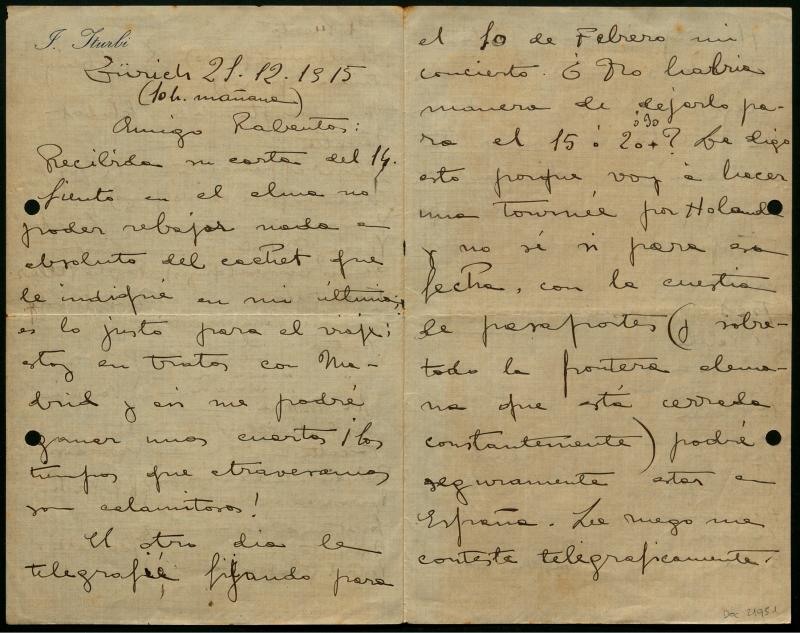 J. Iturbi
Zürich 21.12.1915
(10 h. mañana)
Amigo Rabentos:
Recibida su carta del 14.
Siento en el alma no
poder rebajar nada en
absoluto del cachet que
le indiqué en mi última;
es lo justo para el viaje;
estoy en tratos con Ma-
drid y asi me podré
ganar unos cuartos ¡los
tiempos que atravesamos
son calamitosos!
El otro dia le
telegrafié fijando para
el 10 de Febrero mi
concierto. ¿ No habria
manera de dejarlo pa-
ó 30
ra el 15 ó 20 + ? Le digo
esto porque voy á hacer
una Tournée por Holanda
y no sé si para esa
fecha, con la cuestión
de pasaportes (y sobre-
todo la frontera alema-
na que está cerrada
constantemente) podré
seguramente estar en
España. Le ruego me
conteste telegraficamente.
Doc 21951